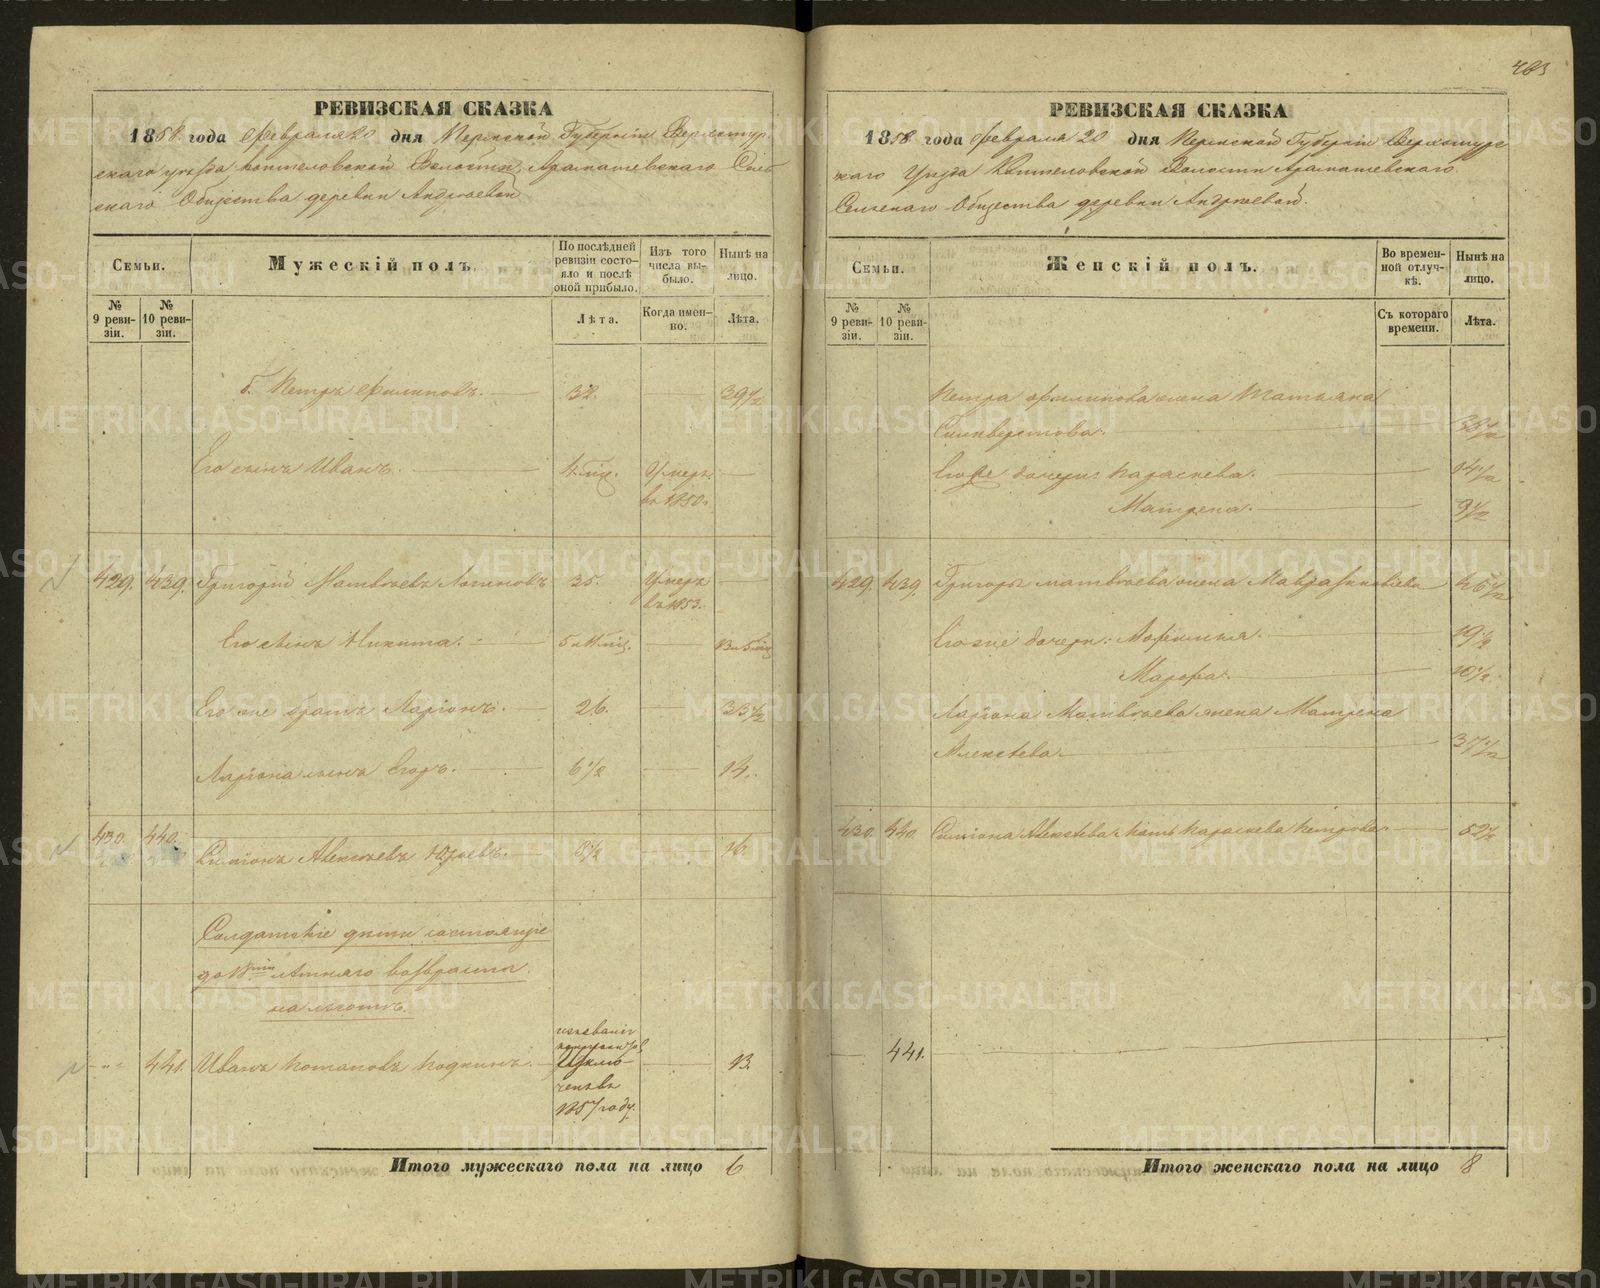 403
РЕВИЗСКАЯ СКАЗКА
1858. года Февраля 20 дня Пермской Губерніи Верхотур
скаго уѣзда Коптеловской Волости, Арамашевскаго Сель
скаго Общества деревни Андреевой
Семьи.
Мужескій полъ.
По послѣдней ревизіи состояло и послѣ оной прибыло.
Изъ того числа выбыло.
Нынѣ на лицо.
№ 9 ревизіи.
№ 10 ревизіи.
Лѣта.
Когда именно.
Лѣта.
Петръ Филиповъ. 32. 39½
Его сынъ Иванъ. Умеръ
въ 1850.
429. 439. Григорій Матвѣевъ 35. Умеръ
въ 1853.
Его сынъ Никита.
Его же братъ Ларіонъ. 26. 33½
Ларіона сынъ Егоръ. 6½ 14.
430. 440. Симіонъ Алексѣевъ 8½ 16
Солдатскіе дѣти состоящіе
до лѣтняго возвраста
на льготѣ.
441. Иванъ Потаповъ 13.
1857 году.
Итого мужескаго пола на лицо 6
РЕВИЗСКАЯ СКАЗКА
1858. года Февраля 20 дня Пермской Губерніи Верхотурс
каго Уѣзда Коптеловской Волости Арамашевскаго
Сельскаго Общества деревни Андреевой.
Семьи.
Женскій полъ.
Во временной отлучкѣ.
Нынѣ на лицо.
№ 9 ревизіи.
№ 10 ревизіи.
Съ котораго времени.
Лѣта.
Петра Филипова жена Татьяна
Силиверстова.
Его же дочери: Параскева. 14½
Матрена. 9½
429. 439. Григорья Матвѣева жена Мавра 46½
Его же дочери: 19½
Марфа. 10½
Ларіона Матвѣева жена Матрена
Алексѣева 37½
430. 440. Симіона Алексѣева мать Параскева Петрова 52½
441.
Итого женскаго пола на лицо 8
METRIKI.GASO-URAL.RU